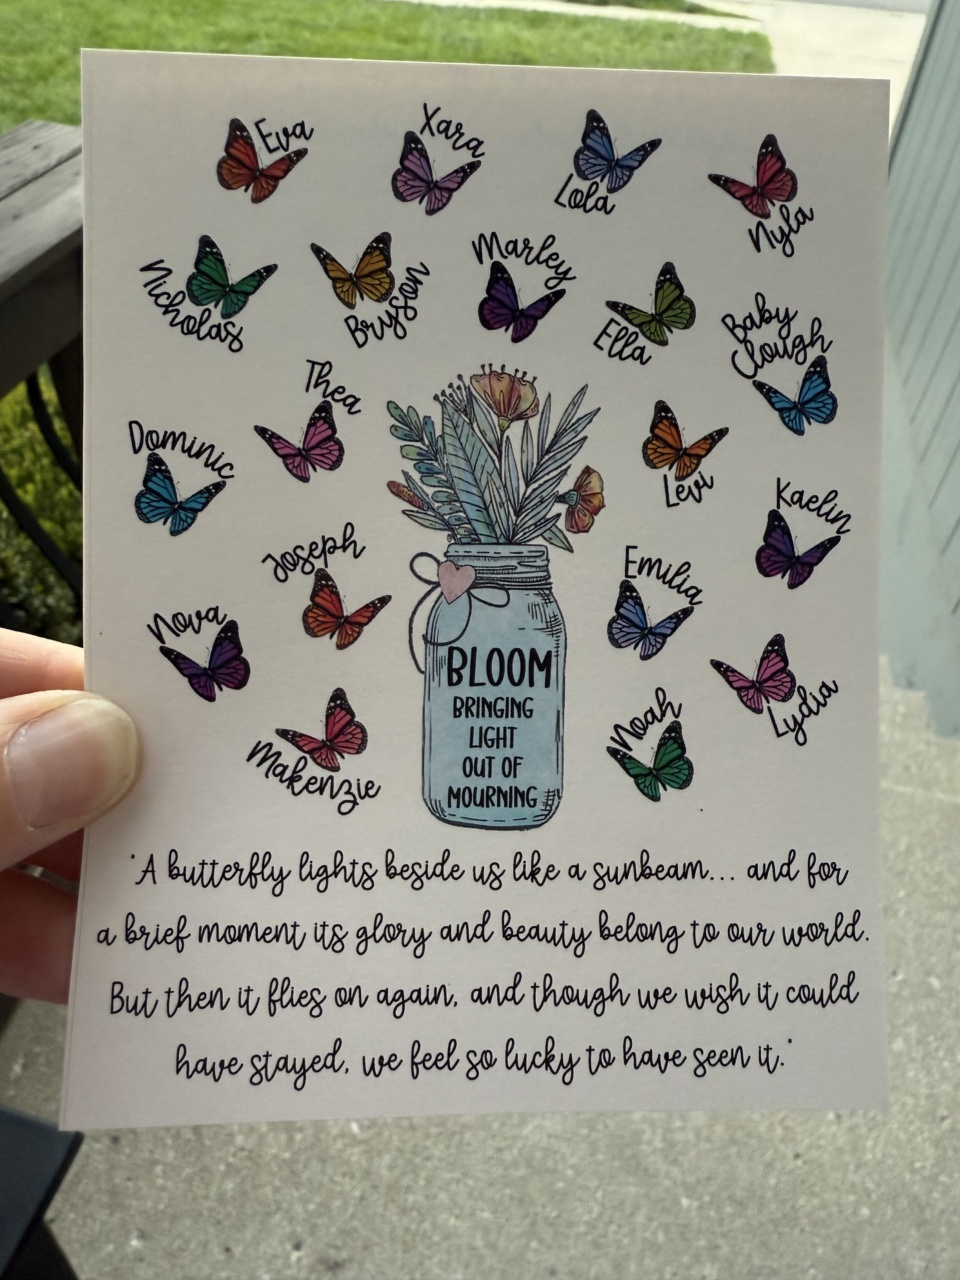 Eva
Xara
Lola
Nyla
Nicholas
Bryson
Marley
Ella
Baby
Clough
Thea
Dominic
Levi
Kaelin
Joseph
Emilia
Nova
Lydia
Makenzie
Noah
BLOOM
BRINGING
LIGHT
OUT OF
MOURNING
"A butterfly lights beside us like a sunbeam... and for
a brief moment its glory and beauty belong to our world.
But then it flies on again, and though we wish it could
have stayed, we feel so lucky to have seen it."